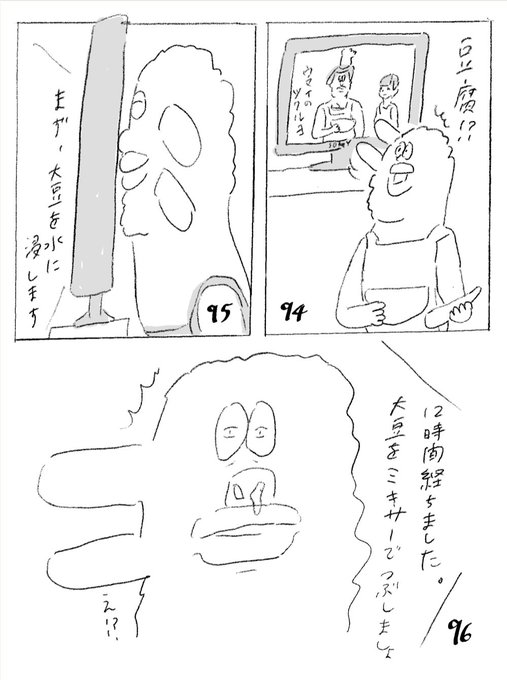 豆腐!?
ウマイの
ツクルヨ
SONY
94
まず、大豆を水に
浸します
95
12時間経ちました。
大豆をミキサーでつぶしましょ
え!?
96